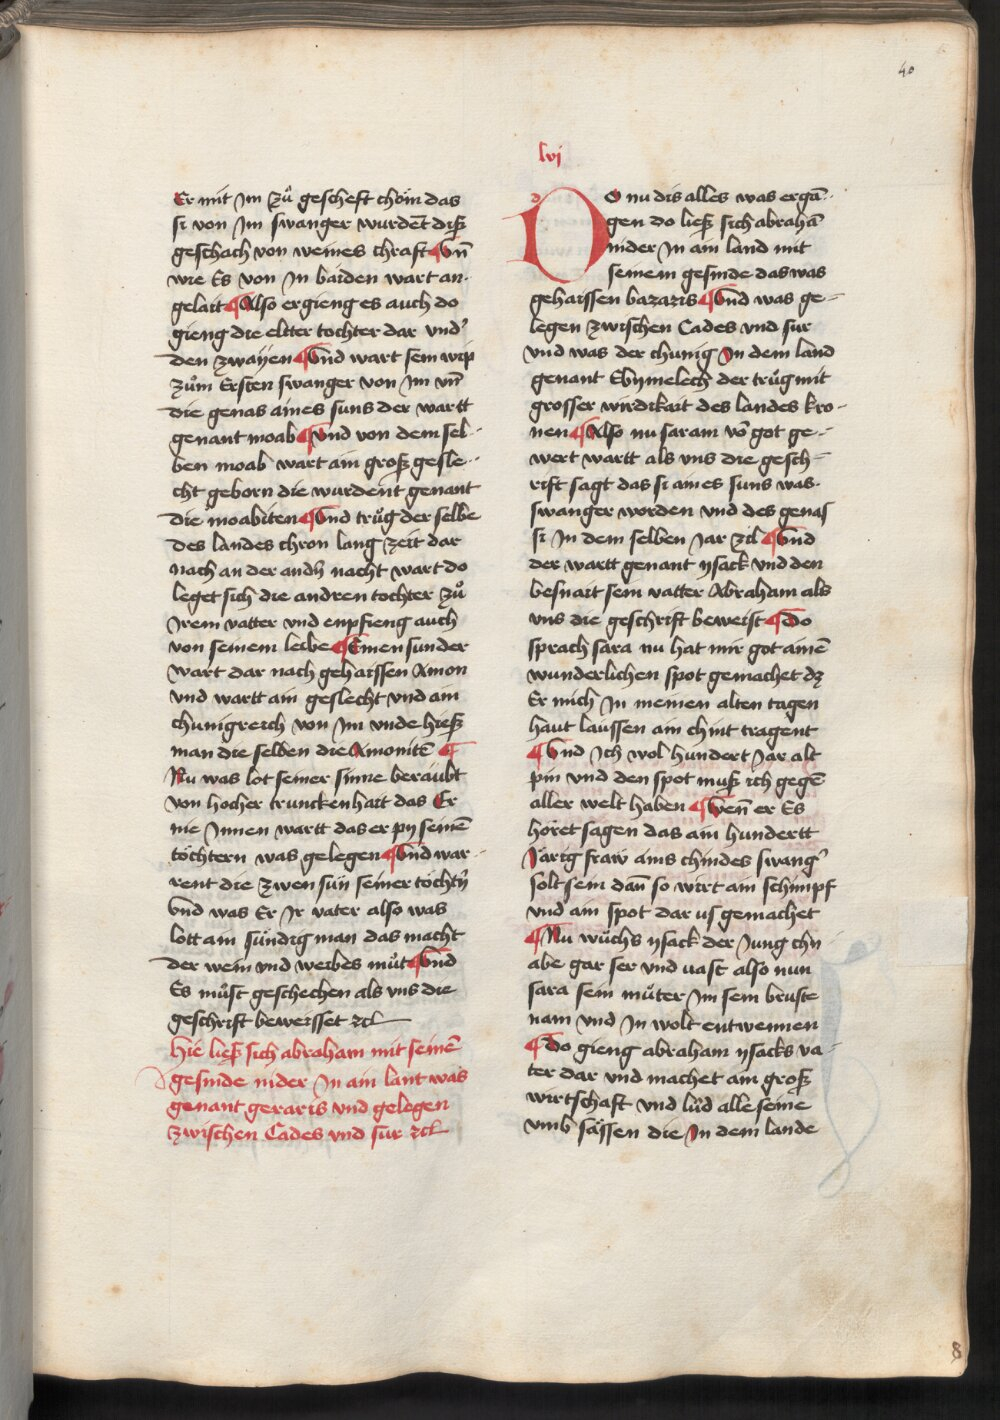 40
Er mit Im zů gescheft chöm das
si von Im swanger wurdēt diß
geschach von weines chraft ¶ Vn̄
wie Es von In baiden wart an-
gelait ¶ Also ergieng es auch do
gieng die eltter tochter dar vnd'
den zwayen ¶ Vnd wart sein wip
zům Ersten swanger von Im vn̄
die genas aines suns der wartt
genant moab ¶ Vnd von dem sel-
ben moab wart ain groß gesle-
cht geborn die wurdent genant
die moabiten ¶ Vnd trůg der selbe
des landes chron lang zeit dar
nach an der andn̄ nacht wart do
leget sich die andren tochter zů
Irem vatter vnd enpfieng auch
von seinem leibe ¶ Einen sun der
wart dar nach gehaissen Amon
vnd wartt ain geslecht vnd ain
chunigreich von Im vnde hieß
man die selben die Amonitē ¶
Nu was lot seiner sinne beraubt
von hocher trunckenhait das Er
nie Innen wartt das er py seinē
töchtern was gelegen ¶ Vnd war-
rent die zwen sün seiner töchtn̄
vnd was Er Ir vater also was
lott ain sündig man das macht
der wein vnd weibes můt ¶ Vnd
Es můst geschechen als vns die
geschrift beweisset zcͣ
Hie ließ sich abraham mit seinē
gesinde nider In ain lant was
genant geraris vnd gelegen
zwischen Cades vnd sur zcͣ
lvi
d
DO nu dis alles was ergā-
gen do ließ sich abrahā
nider In ain land mit
seinem gesinde das was
gehaissen bazaris ¶ Vnd was ge-
legen zwischen Cades vnd sur
vnd was der chunig In dem land
genant Ebymelech der trůg mit
grosser wirdikait des landes kro-
nen ¶ Also nu saram vō got ge-
wert wartt als vns die gesch-
rift sagt das si aines suns was
swanger worden vnd des genas
si In dem selben Jar zil ¶ Vnd
der wartt genant ysack vnd den
besnait sein vatter Abraham als
vns die geschrift beweist ¶ Do
sprach sara nu hat mir got ainē
wunderlichen spot gemachet dz
Er mich In meinen alten tagen
haut laussen ain chint tragent
¶ Vnd Ich wol hundert Jar alt
pin vnd den spot muß ich gegē
aller welt haben ¶ Wen̄ er Es
höret sagen das ain hundertt
Järig fraw ains chindes swang'
solt sein dan̄ so wirt ain schimpf
vnd ain spot dar us gemachet
¶ Nu wůchs ysack der Jung chn-
abe gar ser vnd vast also nun
sara sein můter Im sein bruste
nam vnd In wolt entwennen
¶ Do gieng abraham ysacks va-
ter dar vnd machet ain groß
wirtschaft vnd lůd alle seine
vmb sässen die In dem lande
8